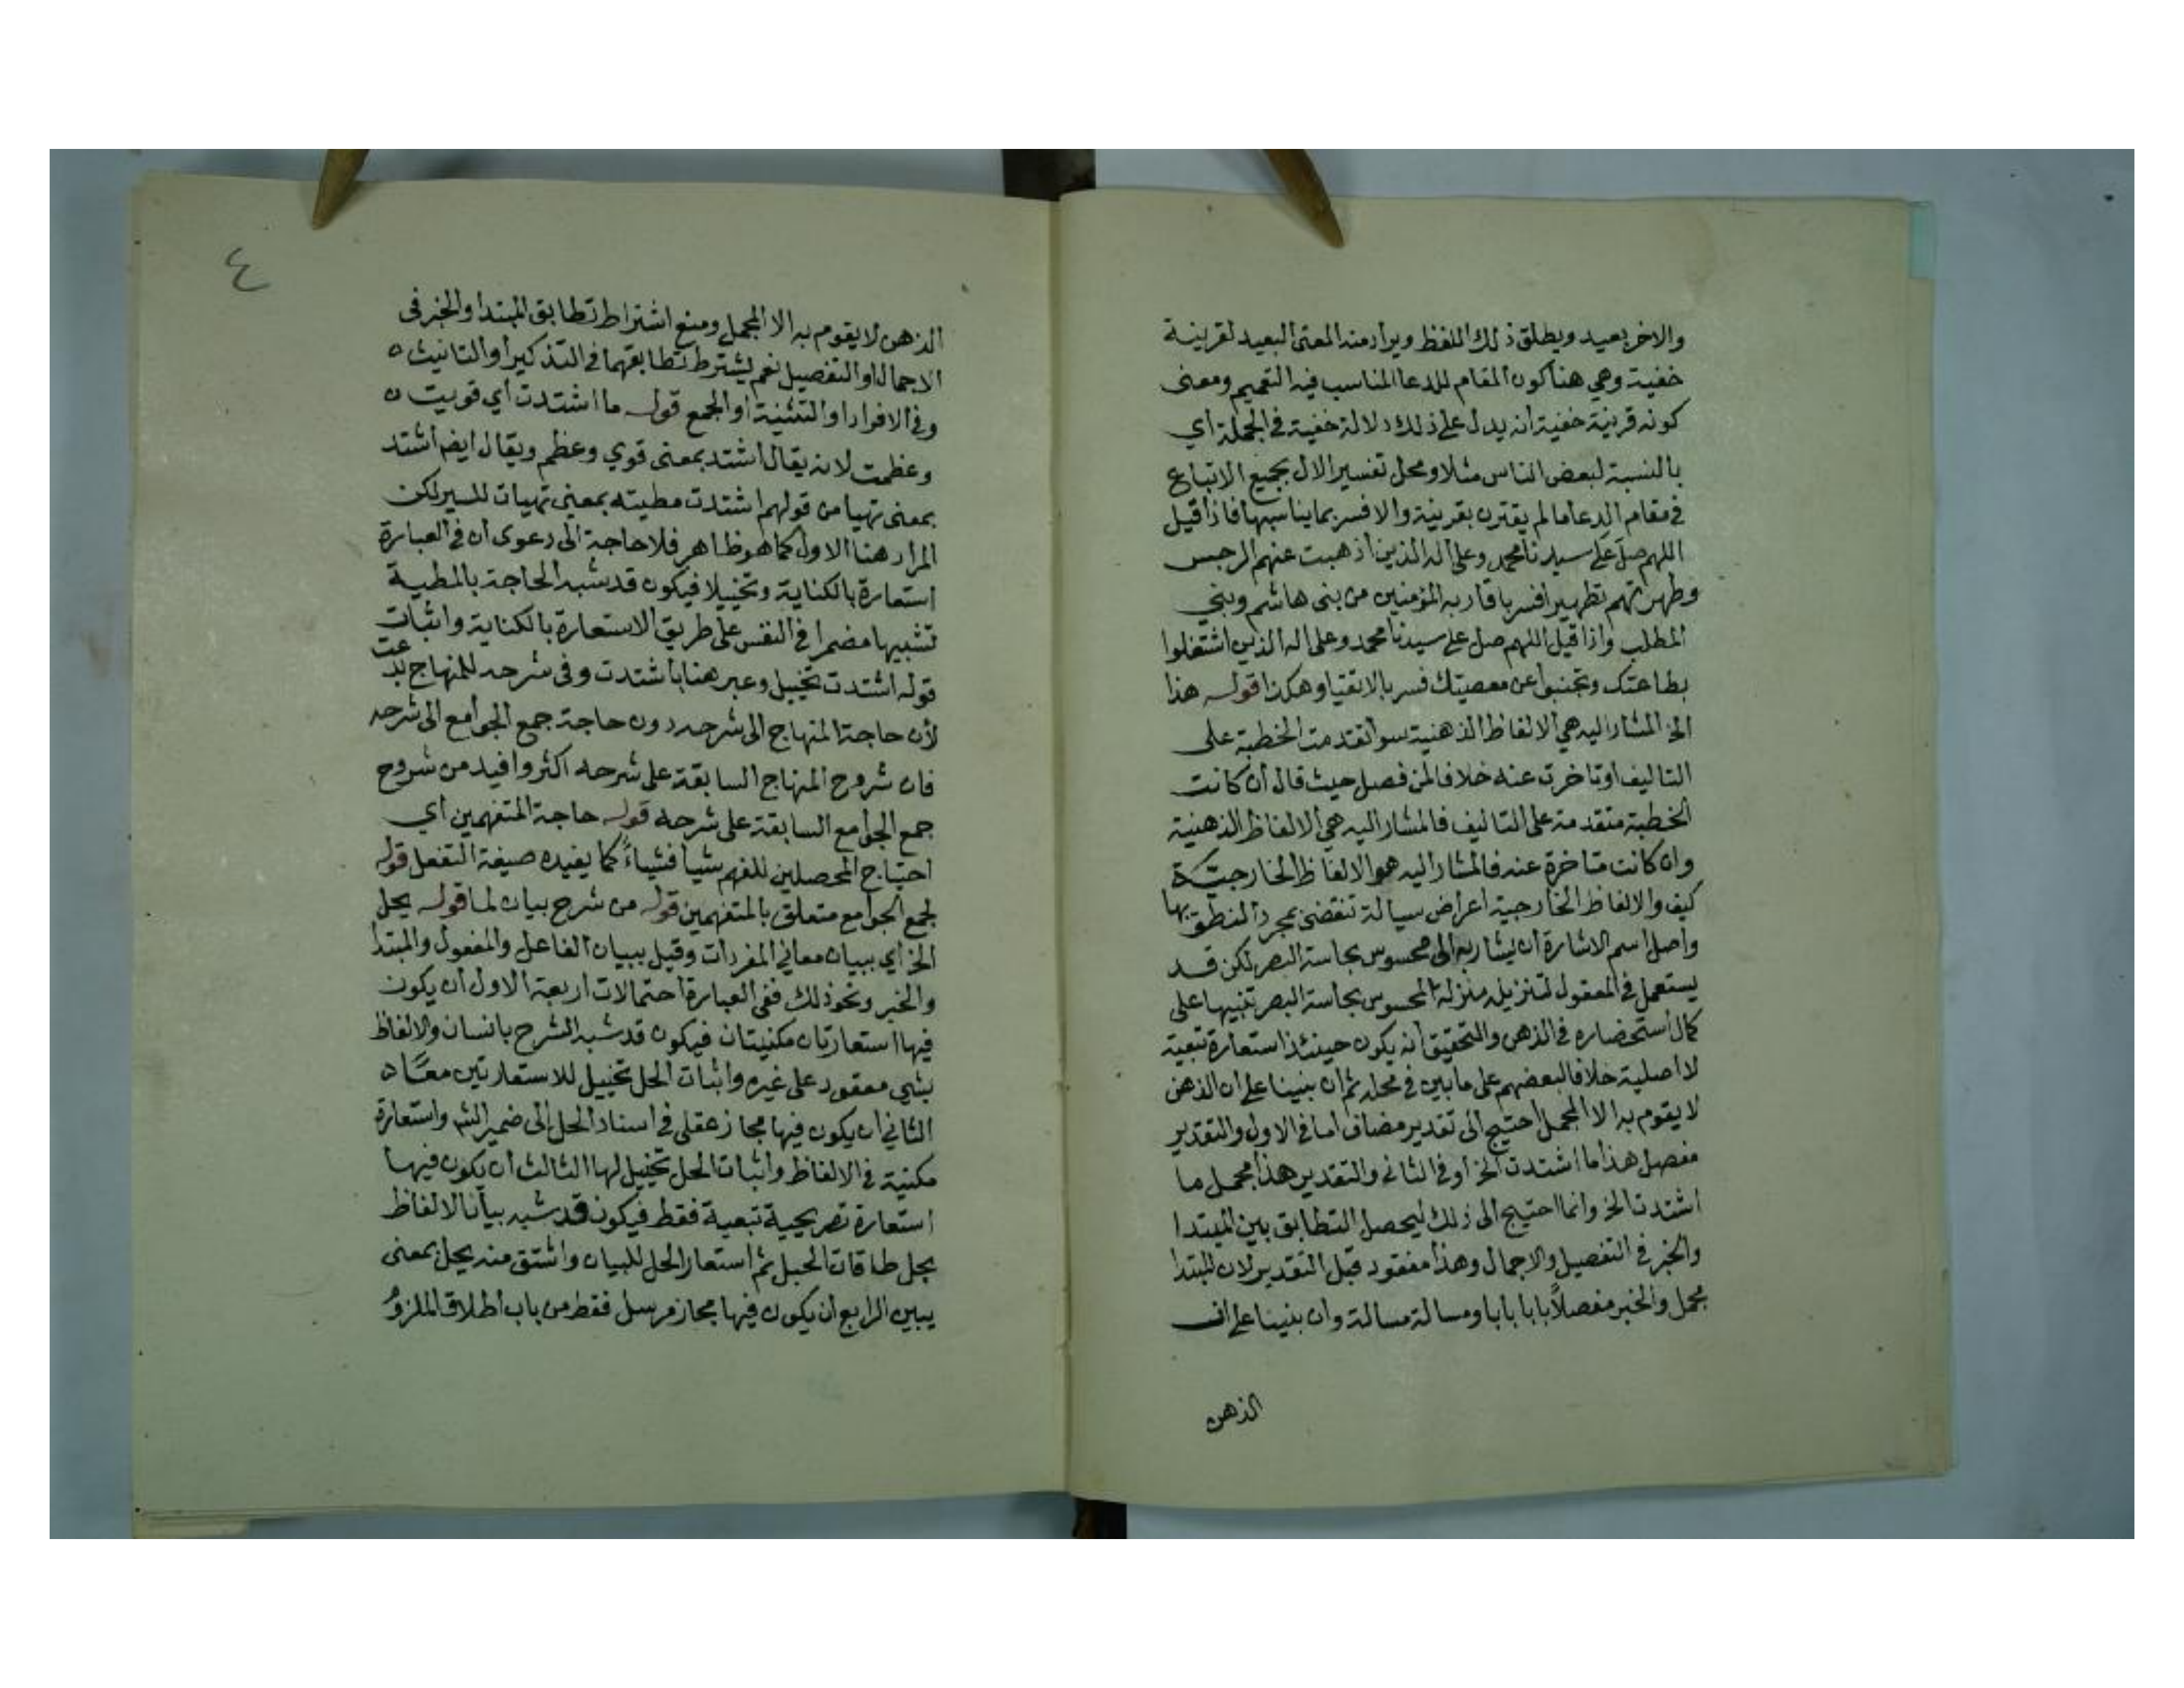 والاخر بعيد ويطلق ذلك اللفظ ويراد منه المعنى البعيد لقرينة
خفية وهي هنا كون المقام للدعا المناسب فيه التعميم ومعنى
كونه قرينة خفية انه يدل على ذلك دلالة خفية في الجملة أي
بالنسبة لبعض الناس مثلا ومحل تفسير الال بجميع الاتباع
في مقام الدعا ما لم يقترن بقرينة والا فسر بما يناسبها فاذا قيل
اللهم صل على سيدنا محمد وعلى اله الذين اذهبت عنهم الرجس
وطهرتهم تطهيرا فسر باقاربه المؤمنين من بني هاشم وبني
المطلب واذا قيل اللهم صل على سيدنا محمد وعلى اله الذين اشتغلوا
بطاعتك وتجنبوا عن معصيتك فسر بالاتقيا وهكذا قوله هذا
الخ المشار اليه هي الالفاظ الذهنية سوا تقدمت الخطبة على
التاليف او تاخرت عنه خلافا لمن فصل حيث قال ان كانت
الخطبة متقدمة على التاليف فالمشار اليه هي الالفاظ الذهنية
وان كانت متاخرة عنه فالمشار اليه هو الالفاظ الخارجية
كيف والالفاظ الخارجية اعراض سيالة تنقضي بمجرد النطق بها
واصل اسم الاشارة ان يشار به الى محسوس بحاسة البصر لكن قد
يستعمل في المعقول لتنزيله منزلة المحسوس بحاسة البصر تنبيها على
كمال استحضاره في الذهن والتحقيق انه يكون حينئذ استعارة تبعية
لا اصلية خلافا لبعضهم على ما بين في محله ثم ان بنينا على ان الذهن
لا يقوم به الا المجمل احتيج الى تقدير مضاف اما في الاول والتقدير
مفصل هذا ما اشتدت الخ او في الثاني والتقدير هذا مجمل ما
اشتدت الخ وانما احتيج الى ذلك ليحصل التطابق بين المبتدا
والخبر في التفصيل والاجمال وهذا مفقود قبل التقدير لان المبتدا
مجمل والخبر مفصلاً بابا بابا ومسالة مسالة وان بنينا على ان
الذهن
٤
الذهن لا يقوم به الا المجمل ومنع اشتراط تطابق المبتدا والخبر في
الاجمال او التفصيل نعم يشترط تطابقهما في التذكير او التانيث
وفي الافراد او التثنية او الجمع قوله ما اشتدت أي قويت
وعظمت لانه يقال اشتد بمعنى قوي وعظم ويقال ايضا اشتد
بمعنى تهيا من قولهم اشتدت مطيته بمعنى تهيات للسير لكن
المراد هنا الاول كما هو ظاهر فلا حاجة الى دعوى ان في العبارة
استعارة بالكناية وتخييلا فيكون قد شبه الحاجة بالمطية
تشبيها مضمرا في النفس على طريق الاستعارة بالكناية واثبات
قوله اشتدت تخييل وعبر هنا باشتدت وفي شرحه للمنهاج بدعت
لأن حاجة المنهاج الى شرحه دون حاجة جمع الجوامع الى شرحه
فان شروح المنهاج السابقة على شرحه اكثر وافيد من شروح
جمع الجوامع السابقة على شرحه قوله حاجة المتفهمين أي
احتياج المحصلين للفهم شيا فشياءً كما يفيده صيغة التفعل قوله
لجمع الجوامع متعلق بالمتفهمين قوله من شرح بيان لما قوله يحل
الخ أي ببيان معاني المفردات وقيل ببيان الفاعل والمفعول والمبتدا
والخبر ونحو ذلك ففي العبارة احتمالات اربعة الاول ان يكون
فيها استعارتان مكنيتان فيكون قد شبه الشرح بانسان والالفاظ
بشي معقود على غيره واثبات الحل تخييل للاستعارتين معًا
الثاني ان يكون فيها مجاز عقلي في اسناد الحل الى ضمير الشرح واستعارة
مكنية في الالفاظ واثبات الحل تخييل لها الثالث ان يكون فيها
استعارة تصريحية تبعية فقط فيكون قد شبه بيان الالفاظ
بحل طاقات الحبل ثم استعار الحل للبيان واشتق منه يحل بمعنى
يبين الرابع ان يكون فيها مجاز مرسل فقط من باب اطلاق الملزوم